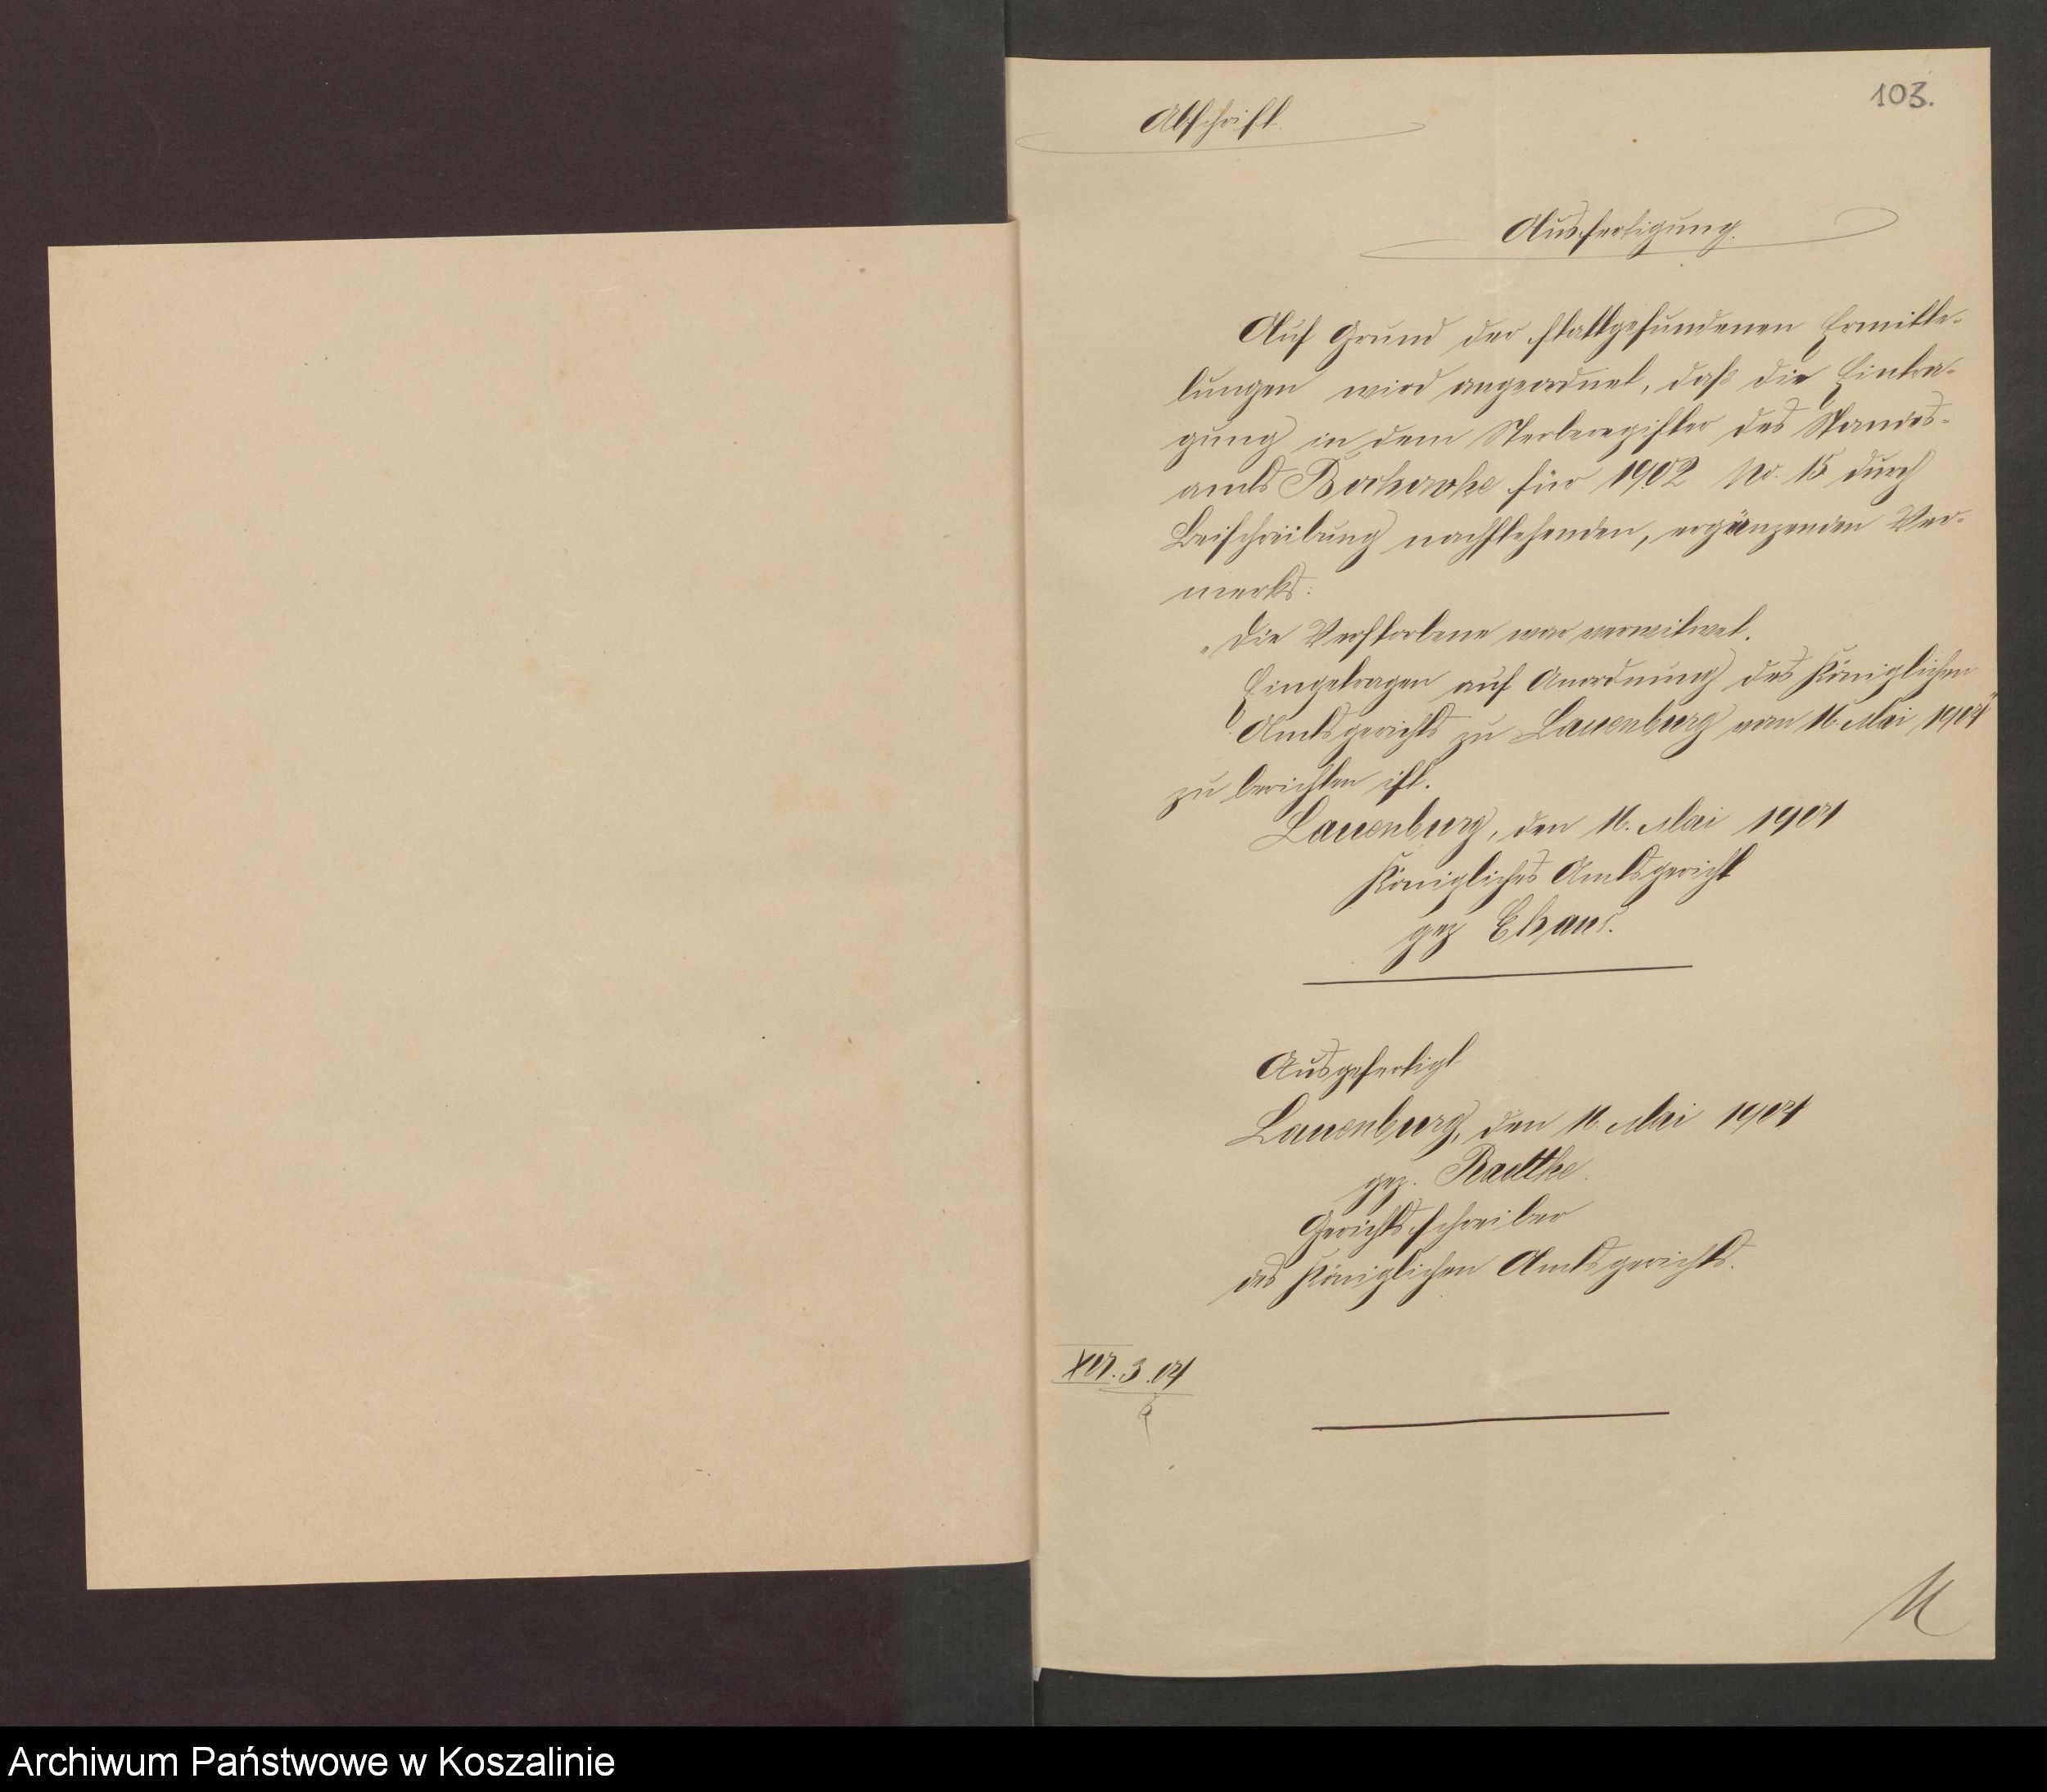 103.
Abschrift.
Ausfertigung.
Auf Grund der stattgefundenen Ermitte-
lungen wird angeordnet, daß die Eintra-
gung in dem Sterberegister des Standes-
amts für 1902 No. 15 durch
Beischreibung nachstehenden, ergänzenden Ver-
merks:
„Die Verstorbene war verwitwet.
Eingetragen auf Anordnung des Königlichen
Amtsgerichts zu Lauenburg vom 16. Mai 1904"
zu berichten ist.
Lauenburg, den 16. Mai 1904
Königliches Amtsgericht
gez
Ausgefertigt
Lauenburg, den 16. Mai 1904
gez. Radtke
Gerichtsschreiber
des Königlichen Amtsgerichts.
3.04
Archiwum Państwowe w Koszalinie